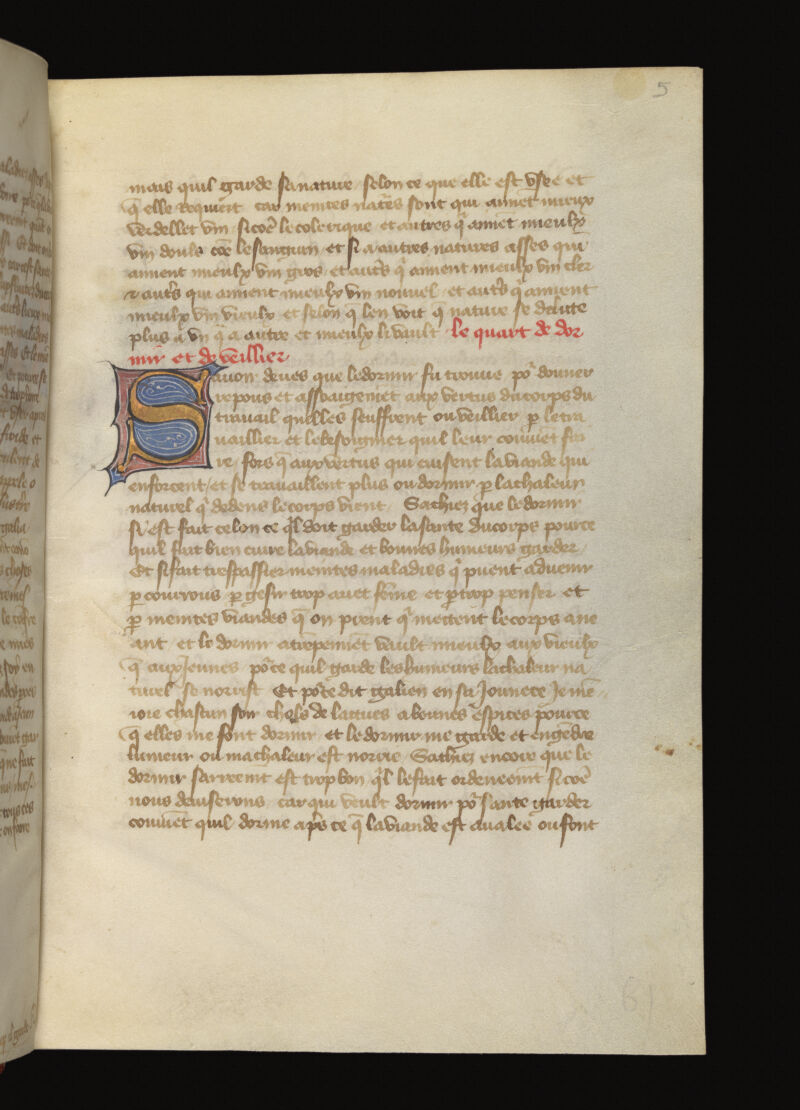 5
mais quil garde sa nature selon ce que elle est usee et
q̄ elle requiert car meintes natēs sont qui aimēt mieux
verdellet vin si cōe le colerique et autres q̄ aimēt mieulx
vin douls cōe le sanguin et si a autres natures asses qui
aiment mieulx vin gros et auts̄ q̄ aiment mieulx vin cler
⁊ auts̄ qui aiment mieulx vin nouvel et auts̄ q̄ aiment
mieulx vin vieulx et selon q̄ len voit q̄ nature se delite
plus a vn q̄ a autre et mieulx li vault le quart de dor
mir et de veillier
Savoir deues que le dormir fu trouve po᷑ donner
repous et assouagement aux vertus du corps du
travail quelles seuffrent ou veillier p̱ le tra
vaillier et le besoignier quil leur couuiēt fai
re fors q̄ aux vertus qui cuisent la viande qui
enforcent et se travaillent plus ou dormir p̱ la chaleur
naturel q̄ dedens le corps vient Sachiez que le dormir
si est fait selon ce ql̄ doit garder la sante du corps pource
quil fait bien cuire la viande et bonnes humeurs garder
Et si fait trespasser meintes maladies q̄ puent advenir
p̱ courous p̱ gesir trop avec fēme et p̱ trop penser et
p̱ meintes viandes q̄ on prent q̄ mectent le corps a ne
ant et le dormir atrēpeemēt vault mieulx aux vieulx
q̄ aux Jeunes po᷑ce quil garde les humeurs la chaleur na
turel se norrist Et po᷑ce dit galien en sa Jounece Je mē
ioie chascun soir chols de lactues a bonnes espices pource
q̄ elles me font dormir et le dormir me garde et engēdre
lumeur ou ma chaleur est norrie Sachiez encore que le
dormir sarreemt est trop bon ql̄ le fait ordeneemt si cōe
nous deviserons car qui veult dormir po᷑ sante garder
couuiēt quil dorme aprs̄ ce q̄ la viande est avalee ou font